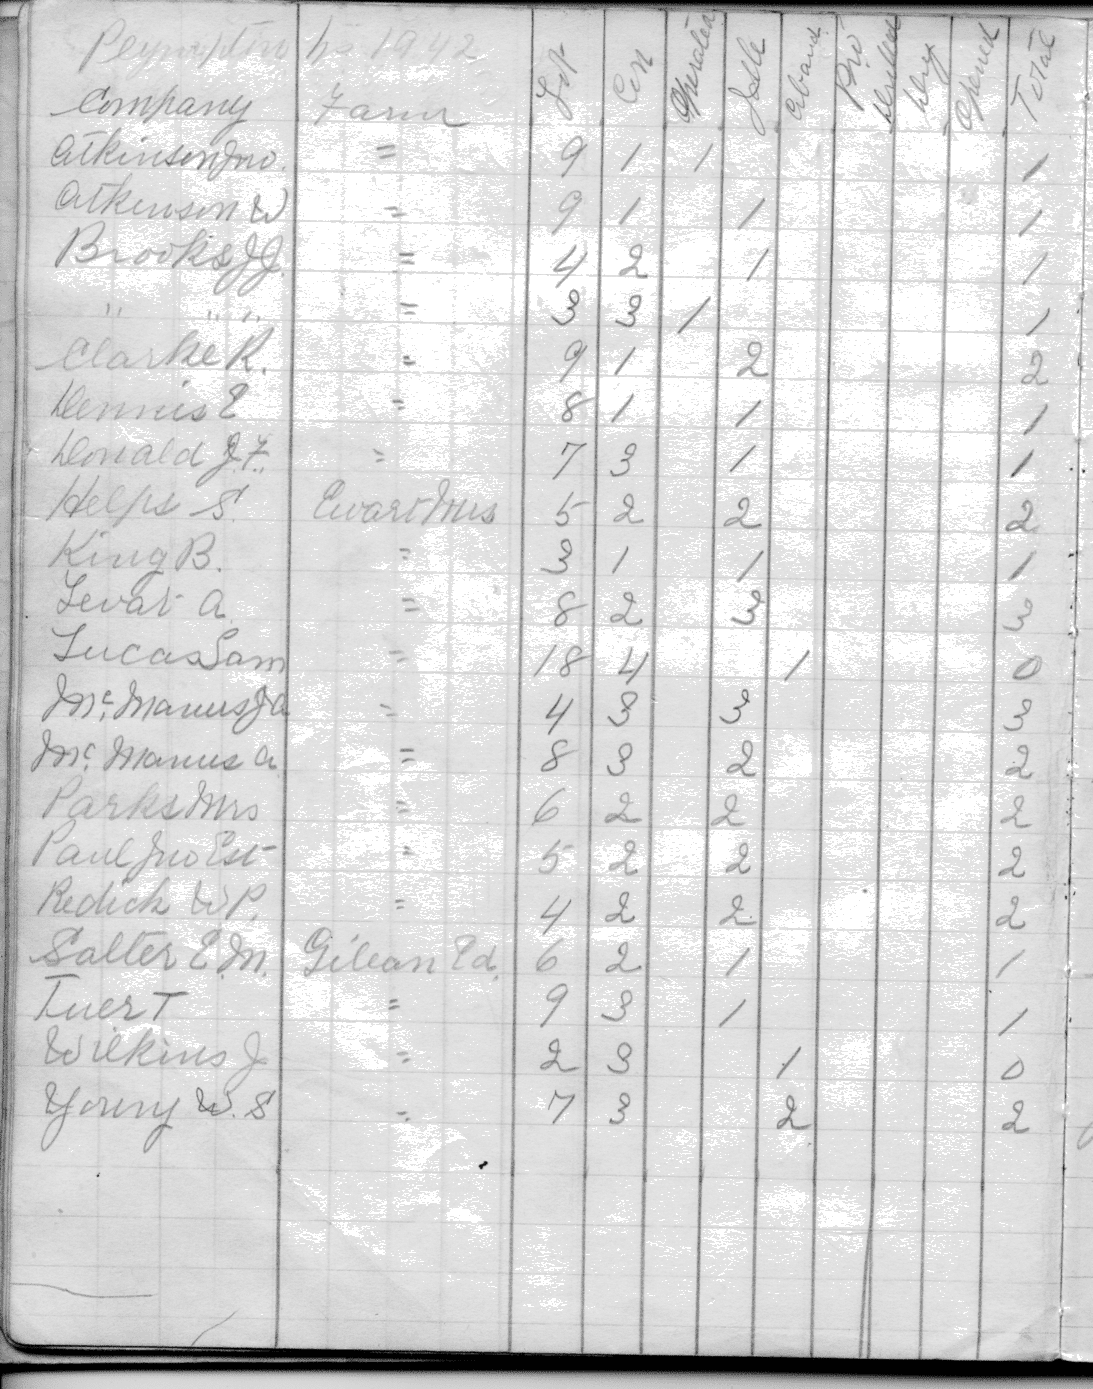 Plympton Tp 1942
Company Farm Lot Con Operated Idle Aband. Pro Drilled Dry Opened Total
Atkinson Jno. " 9 1 1 1
Atkinson W " 9 1 1 1
Brooks J.J. " 4 2 1 1
" " " " 3 3 1 1
Clarke R. " 9 1 2 2
Dennis E " 8 1 1 1
Donald J.F. " 7 3 1 1
Helps S. Ewart Mrs 5 2 2 2
King B. " 3 1 1 1
Levat A. " 8 2 3 3
Lucas Sam " 18 4 1 0
Mc. Manus J A " 4 3 3 3
Mc. Manus A " 8 3 2 2
Parks Mrs " 6 2 2 2
Paul Jno Est " 5 2 2 2
Redick W P. " 4 2 2 2
Salter E. M. Ed. 6 2 1 1
T " 9 3 1 1
Wilkins J " 2 3 1 0
Young W. S " 7 3 2 2